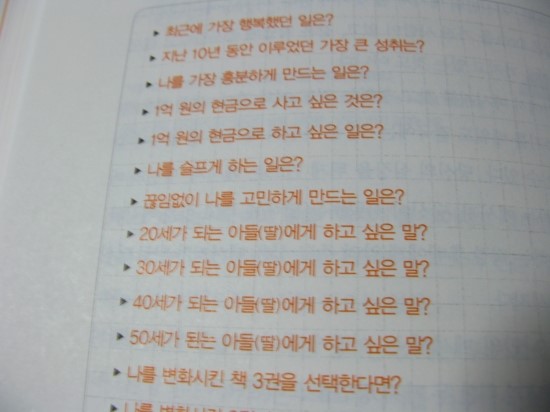 ▸ 최근에 가장 행복했던 일은?
▸ 지난 10년 동안 이루었던 가장 큰 성취는?
▸ 나를 가장 흥분하게 만드는 일은?
▸ 1억 원의 현금으로 사고 싶은 것은?
▸ 1억 원의 현금으로 하고 싶은 일은?
▸ 나를 슬프게 하는 일은?
▸ 끊임없이 나를 고민하게 만드는 일은?
▸ 20세가 되는 아들(딸)에게 하고 싶은 말?
▸ 30세가 되는 아들(딸)에게 하고 싶은 말?
▸ 40세가 되는 아들(딸)에게 하고 싶은 말?
▸ 50세가 된는 아들(딸)에게 하고 싶은 말?
▸ 나를 변화시킨 책 3권을 선택한다면?
▸ 나를 변화시킨